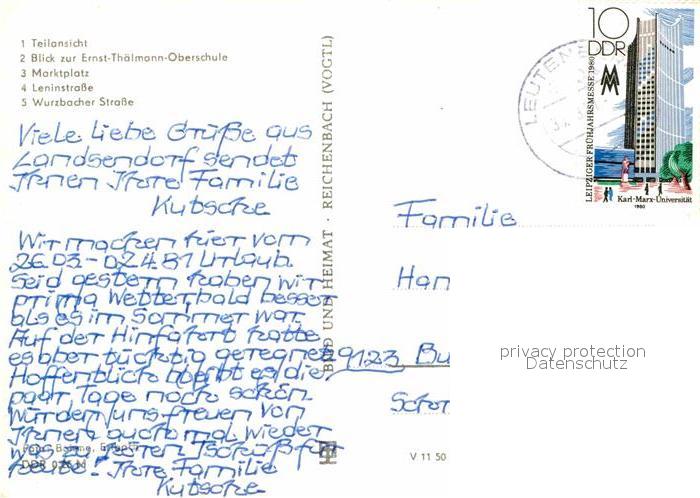 1 Teilansicht
2 Blick zur Ernst-Thälmann-Oberschule
3 Marktplatz
4 Leninstraße
5 Wurzbacher Straße
Viele liebe Grüße aus
Landsendorf sendet
Ihnen Ihre Familie
Kutsche
Wir machen hier vom
26.03.-02.4.81 Urlaub.
Seid gestern haben wir
prima Wetter bald besser
als es im Sommer war.
Auf der Hinfahrt hatte
es aber tüchtig geregnet
Hoffentlich bleibt es die
paar Tage noch schön.
Würden uns freuen von
Ihnen auch mal wieder
was zu hören Tschüß für
heute! Ihre Familie
Kutsche
BILD UND HEIMAT · REICHENBACH (VOGTL)
V 11 50
LEUTEN
10
DDR
MM
LEIPZIGER FRÜHJAHRSMESSE 1980
Karl-Marx-Universität
1980
Familie
Han
9123 Bu
privacy protection
Datenschutz